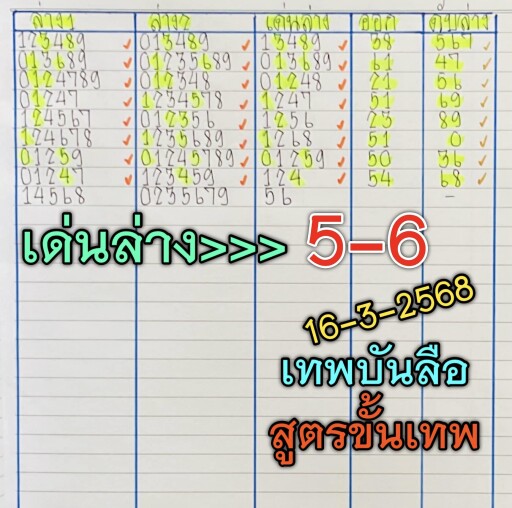 ล่าง1 ล่าง2 เด่นล่าง ออก ดับล่าง
123489 ✓ 013489 ✓ 13489 ✓ 38 567 ✓
013689 ✓ 01235689 ✓ 013689 ✓ 61 47 ✓
0124789 ✓ 012348 ✓ 01248 ✓ 21 56 ✓
01247 ✓ 1234578 ✓ 1247 ✓ 51 69 ✓
124567 ✓ 012356 ✓ 1256 ✓ 23 89 ✓
124678 ✓ 1235689 ✓ 1268 ✓ 51 0 ✓
01259 ✓ 01245789 ✓ 01259 ✓ 50 36 ✓
01247 ✓ 123459 ✓ 124 ✓ 54 68 ✓
14568 0235679 56 –
เด่นล่าง>>> 5-6
16-3-2568
เทพบันลือ
สูตรขั้นเทพ